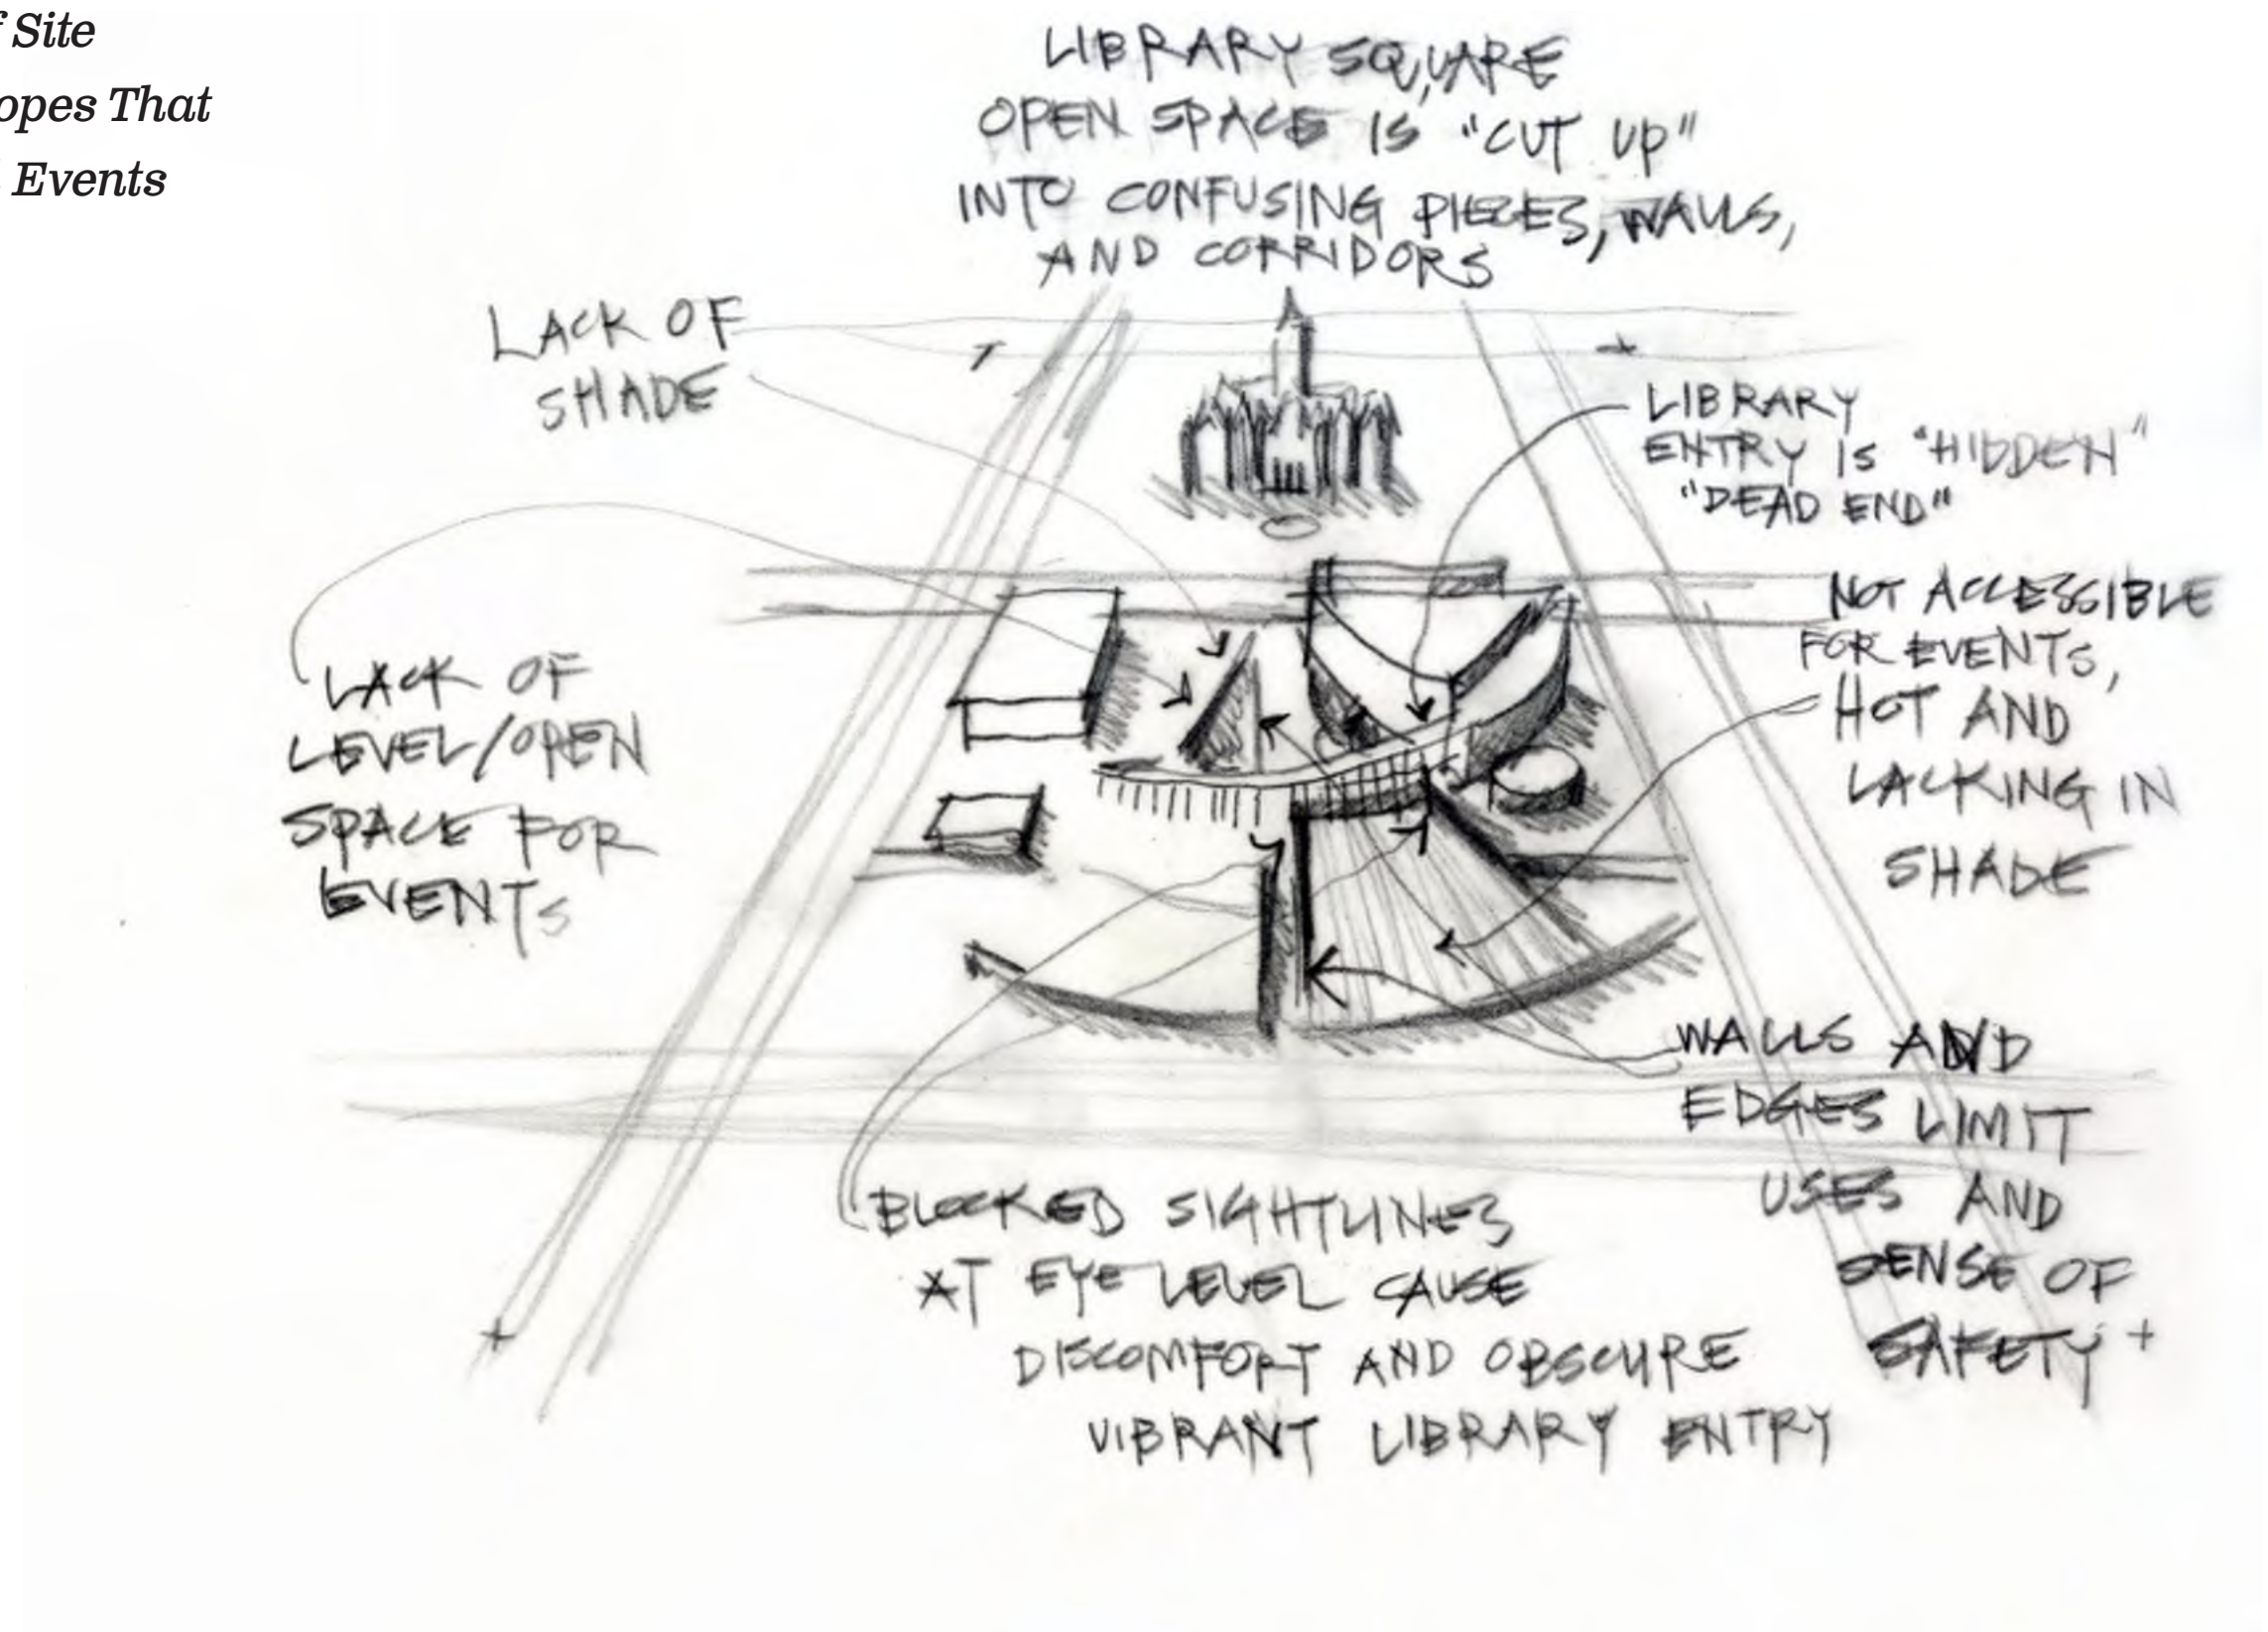 Site
opes That
Events
LIBRARY SQUARE
OPEN SPACE IS "CUT UP"
INTO CONFUSING PIECES, WALLS,
AND CORRIDORS
LACK OF
SHADE
LIBRARY
ENTRY IS "HIDDEN"
"DEAD END"
NOT ACCESSIBLE
FOR EVENTS,
HOT AND
LACKING IN
SHADE
LACK OF
LEVEL/OPEN
SPACE FOR
EVENTS
WALLS AND
EDGES LIMIT
USES AND
SENSE OF
SAFETY
BLOCKED SIGHTLINES
AT EYE LEVEL CAUSE
DISCOMFORT AND OBSCURE
VIBRANT LIBRARY ENTRY